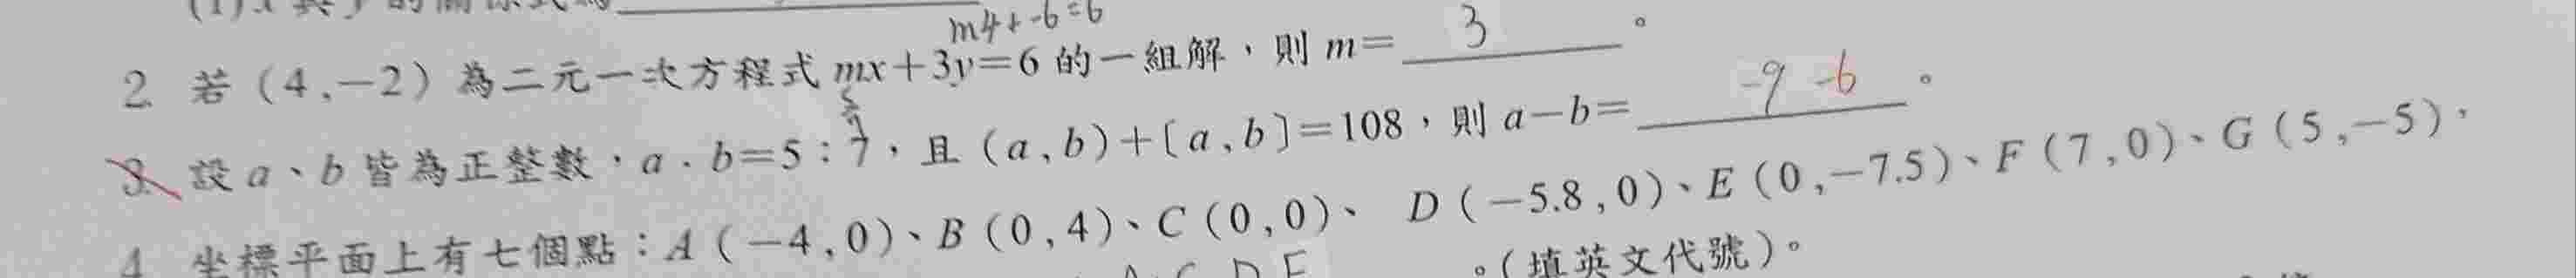 m4+-6=6
2. 若(4,-2)為二元一次方程式 mx+3y=6 的一組解,則 m= 3 。
3. 設 a、b 皆為正整數,a:b=5:7,且(a,b)+[a,b]=108,則 a-b= -9 -6 。
4. 坐標平面上有七個點:A(-4,0)、B(0,4)、C(0,0)、 D(-5.8,0)、E(0,-7.5)、F(7,0)、G(5,-5),
。(填英文代號)。